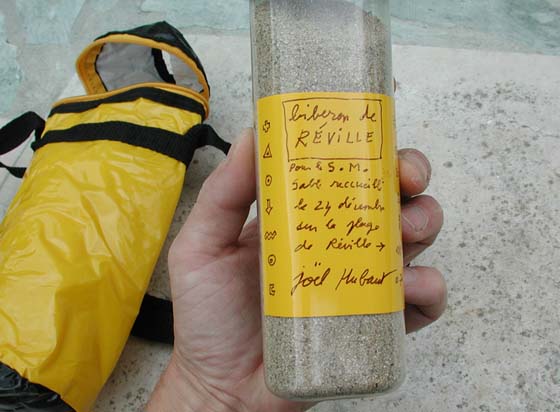 biberon de
RÉVILLE
Pour le S.M.
Sable recueilli
le 24 décembre
sur la plage
de Réville →
joël Hubaut